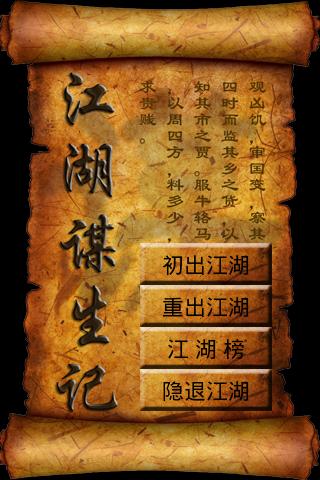 江湖谋生记
观凶饥，审国变，察其
四时而监其乡之货，以
知其市之贾。服牛辂马
，以周四方，料多少，
求贵贱。
初出江湖
重出江湖
江湖榜
隐退江湖